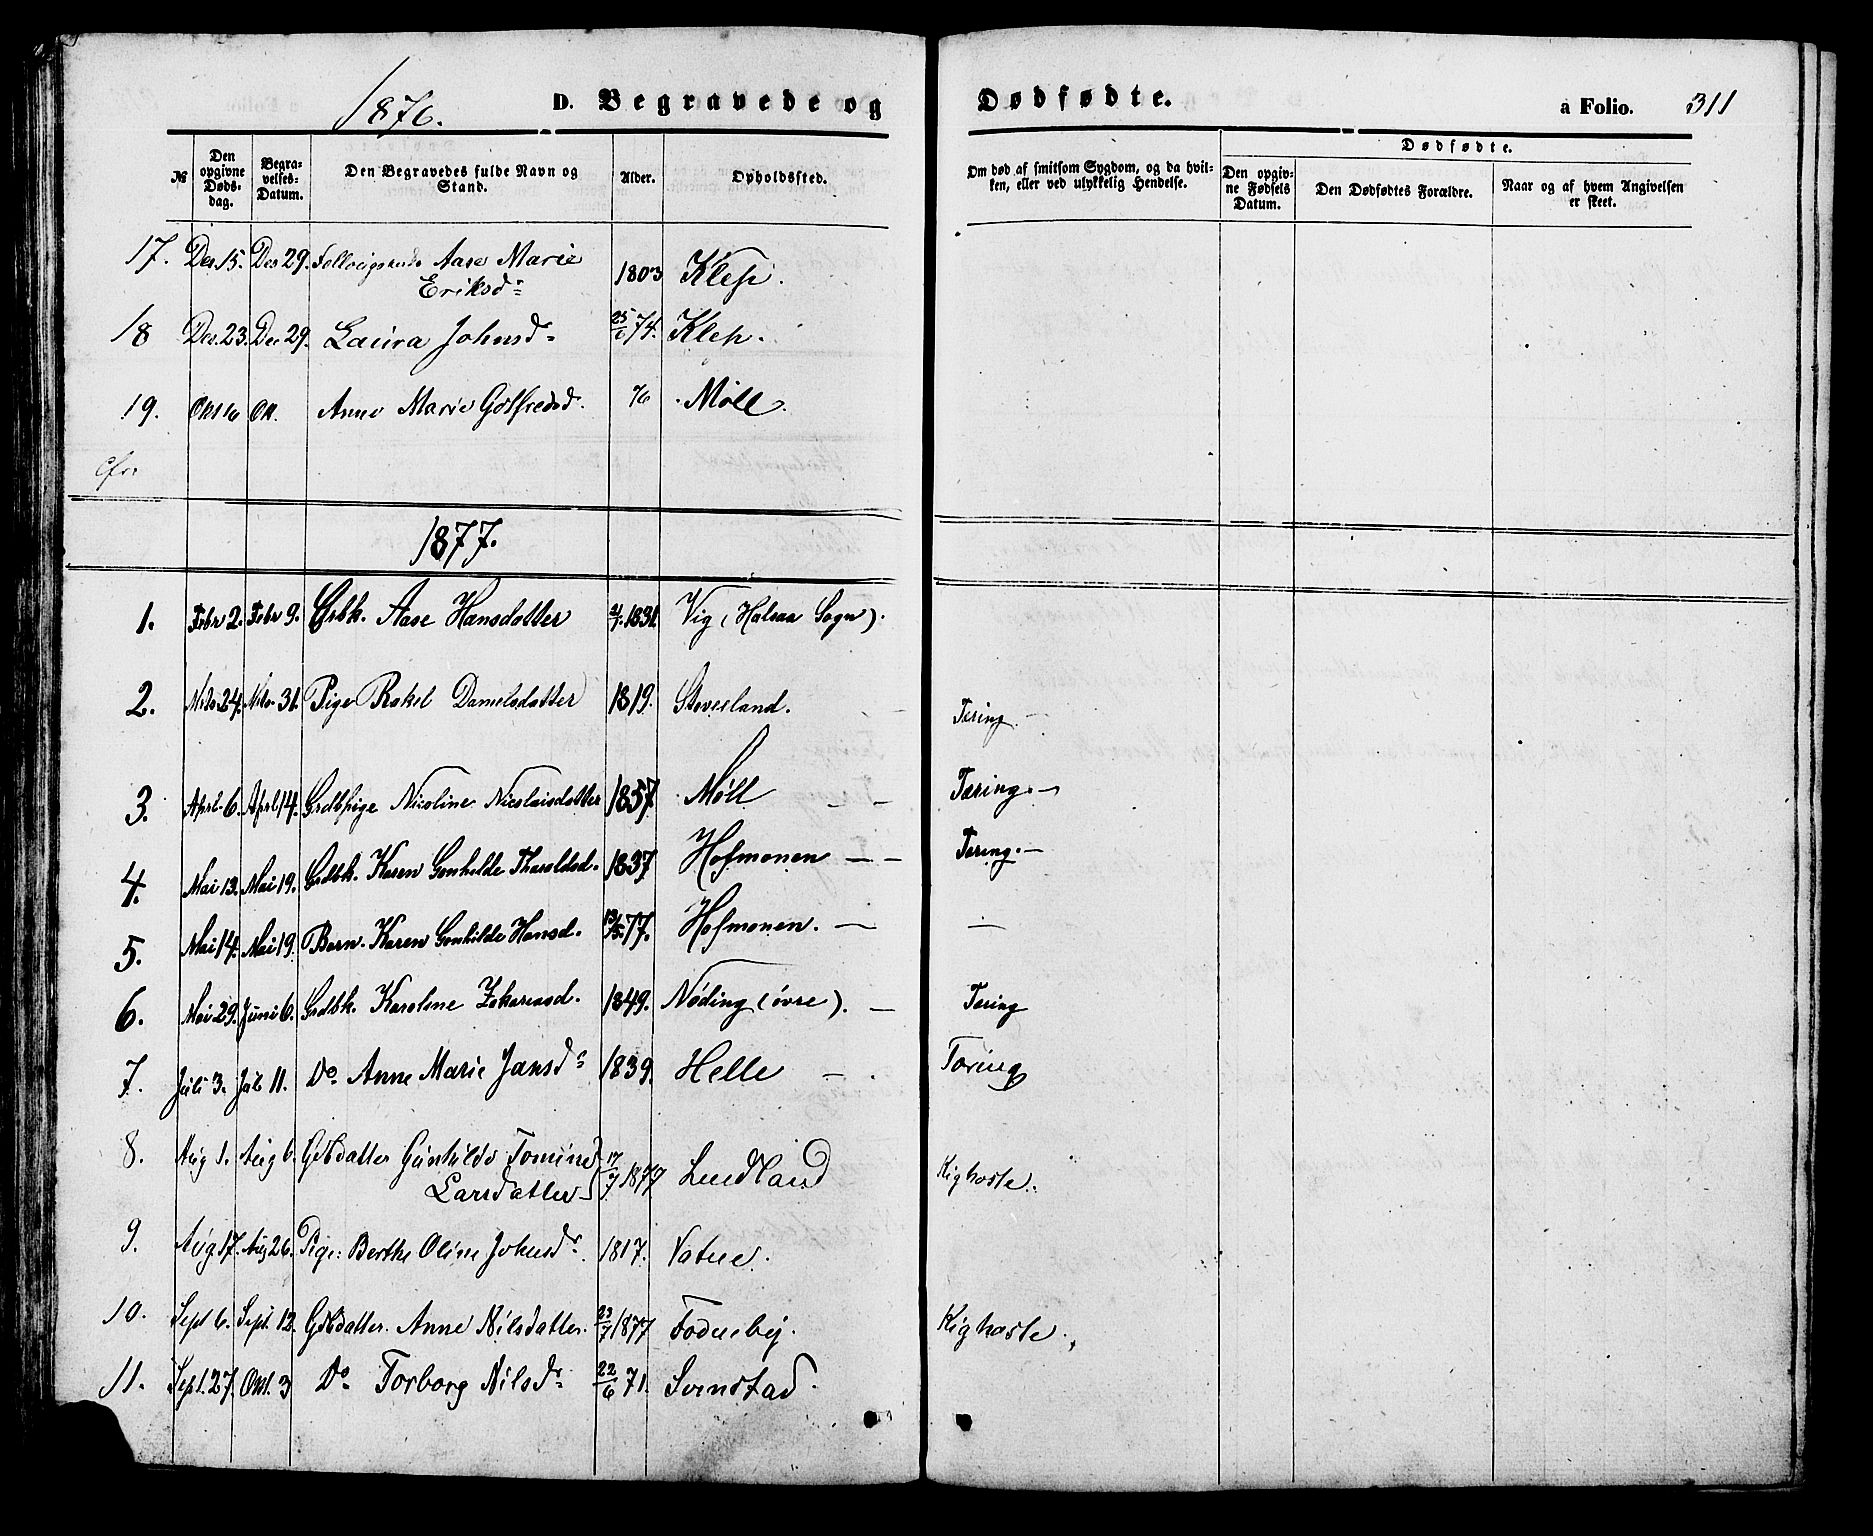 1876. D. Begravede og Dødfødte. a Folio. 311
№ Den opgivne Døds-dag. Begra-velses-Datum. Den Begravedes fulde Navn og Stand. Alder. Opholdssted. Om død af smitsom Sygdom, og da hvil-ken, eller ved ulykkelig Hendelse. Dødfødte. Den opgiv-ne Fødsels Datum. Den Dødfødtes Forældre. Naar og af hvem Angivelsen er skeet.
17. Des. 15. Des 29. Aase Marie
Eriksdr 1803 Klep.
18 Des. 23. Des 29. Laura Johnsdr 25/6 74. Klep.
19. Okt 16 Ok. Anne Marie Gotfredsd. 76 Møll.
Cfr.
1877.
1. Febr 2. Febr 9. Grbk. Aase Hansdatter 2/7. 1831. Vig (Halsaa Sogn).
2. 24. 31. Pige Rakel Danielsdatter 1819. Stoveland. Tæring. —
3. April 6. April 14. Grdbpige Nicoline Nicolaisdatter 1857 Møll — — Tæring. —
4. Mai 13. Mai 19. Grdbk. Karen Gonhilde Tharaldsd. 1837 Hofmonen — — Tæring. —
5. Mai 14. Mai 19. Barn. Karen Gonhilde Hansd. 13/5. 77. Hofmonen. — —
6. Mai 29. Juni 6. Grdbk. Karoline Zakariasd. 1849. Nøding (övre). — Tæring
7. Juli 3. Juli 11. Do. Anne Marie Jansdr 1839. Helle — . Tæring
8. Aug 1. Aug 6. Gdbdatter Gunhilde Tomine
Larsdatter 17/7 1877 Lindland Kighoste.
9. Aug 17. Aug 26. Pige: Berthe Oline Johnsdr. 1817. Vatne.
10. Sept 6. Sept. 12. Gdbdatter. Anne Nilsdatter. 23/7 1877 Fodnebej. Kighoste.
11. Sept. 27. Okt. 3 Do. Torborg Nilsdr 22/6 71. Svinstad.